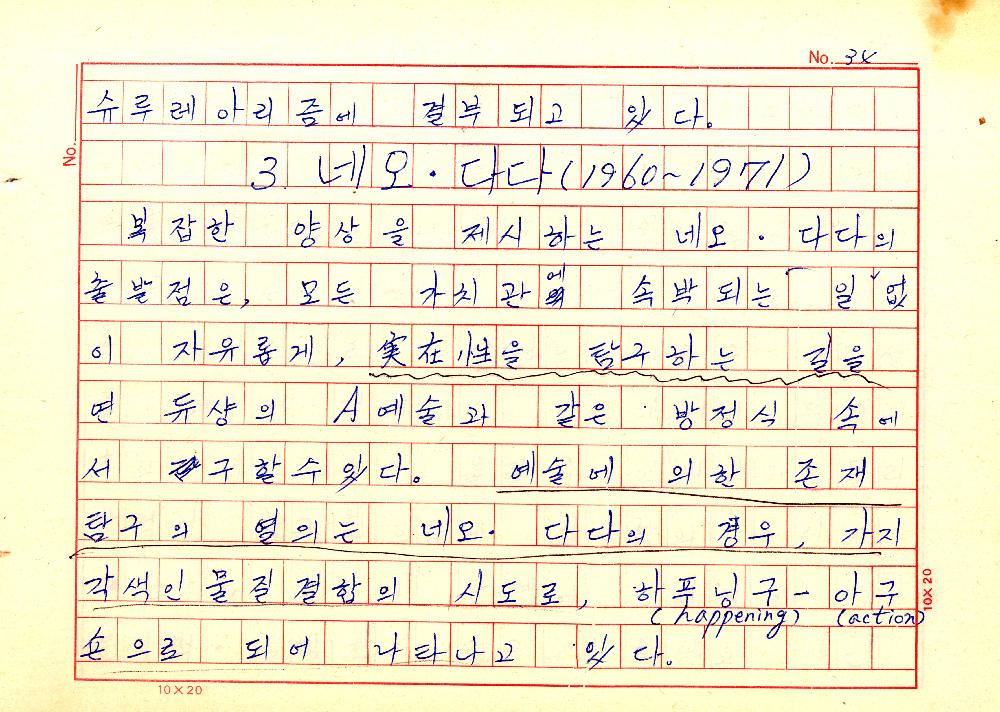 No. 34
No.
슈루레아리즘에 결부 되고 있다.
3. 네오·다다(1960~1971)
복잡한 양상을 제시하는 네오·다다의
출발점은, 모든 가치관에 속박되는 일 없
이 자유롭게, 実在性을 탐구하는 길을
연 듀샹의 A예술과 같은 방정식 속에
서 구할수있다. 예술에 의한 존재
탐구의 열의는 네오·다다의 경우, 가지
각색인 물질결합의 시도로, 하푸닝구-아구
(happening) (action)
숀으로 되어 나타나고 있다.
10×20
10×20